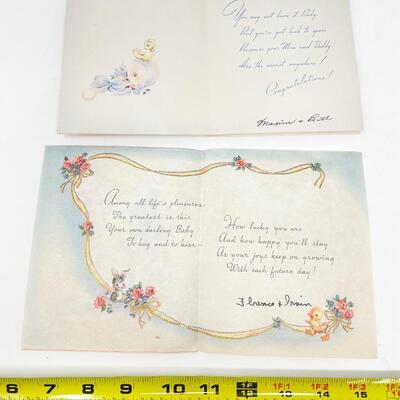 You may not know it, Baby
But you're got luck to spare
Because your Mom and Daddy
Are the nicest anywhere!
Congratulations!
Maxine & Bill
Among all life's pleasures
The greatest is this
Your own darling Baby
To hug and to kiss--
How lucky you are
And how happy you'll stay
As your joys keep on growing
With each future day!
Florence & Irwin
6 7 8 9 10 11 12 13 14 15 16
1F 1F 1F 2F 3F 4F